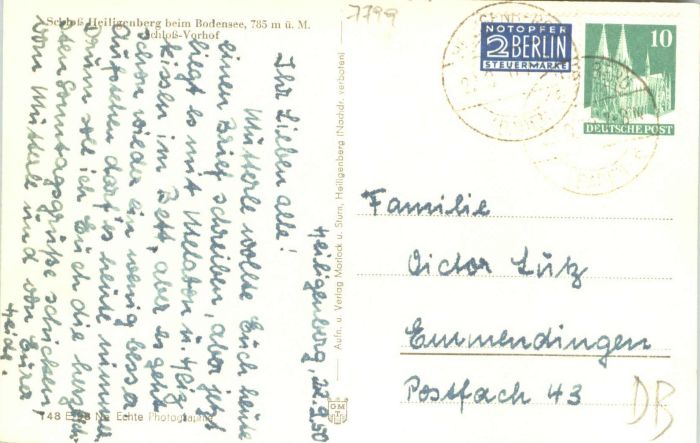 Schloß Heiligenberg beim Bodensee, 785 m ü. M.
Schloß-Vorhof
Heiligenberg, 22.9.50
Ihr Lieben alle!
Mutterle wollte Euch heute
einen Brief schreiben, aber jetzt
liegt es mit Melabon u. Heiz-
kissen im Bett, aber es geht
schon wieder ein wenig besser.
Aufstehen darf es heute nimmer
Drum soll ich Euch die herzlich-
sten Sonntagsgrüße schicken
vom Mutterle und von Eurer
Heide.
148 E
Echte Photographie
Aufn. u. Verlag Morlock u. Sturn, Heiligenberg (Nachdr. verboten)
7799
NOTOPFER
2 BERLIN
STEUERMARKE
10
DEUTSCHE POST
Familie
Victor Lutz
Emmendingen
Postfach 43
DB